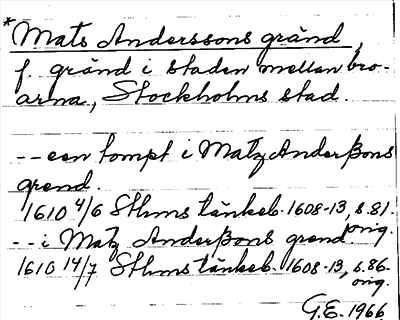 *Mats Anderssons gränd,
f. gränd i staden mellan bro-
arna, Stockholms stad.
--een tompt i Matz Anderßons
grend.
1610 4/6 Sthms tänkeb. 1608-13, s. 81.
orig.
--i Matz Anderßons grend.
1610 14/7 Sthms tänkeb. 1608-13, s. 86.
orig.
G.E. 1966